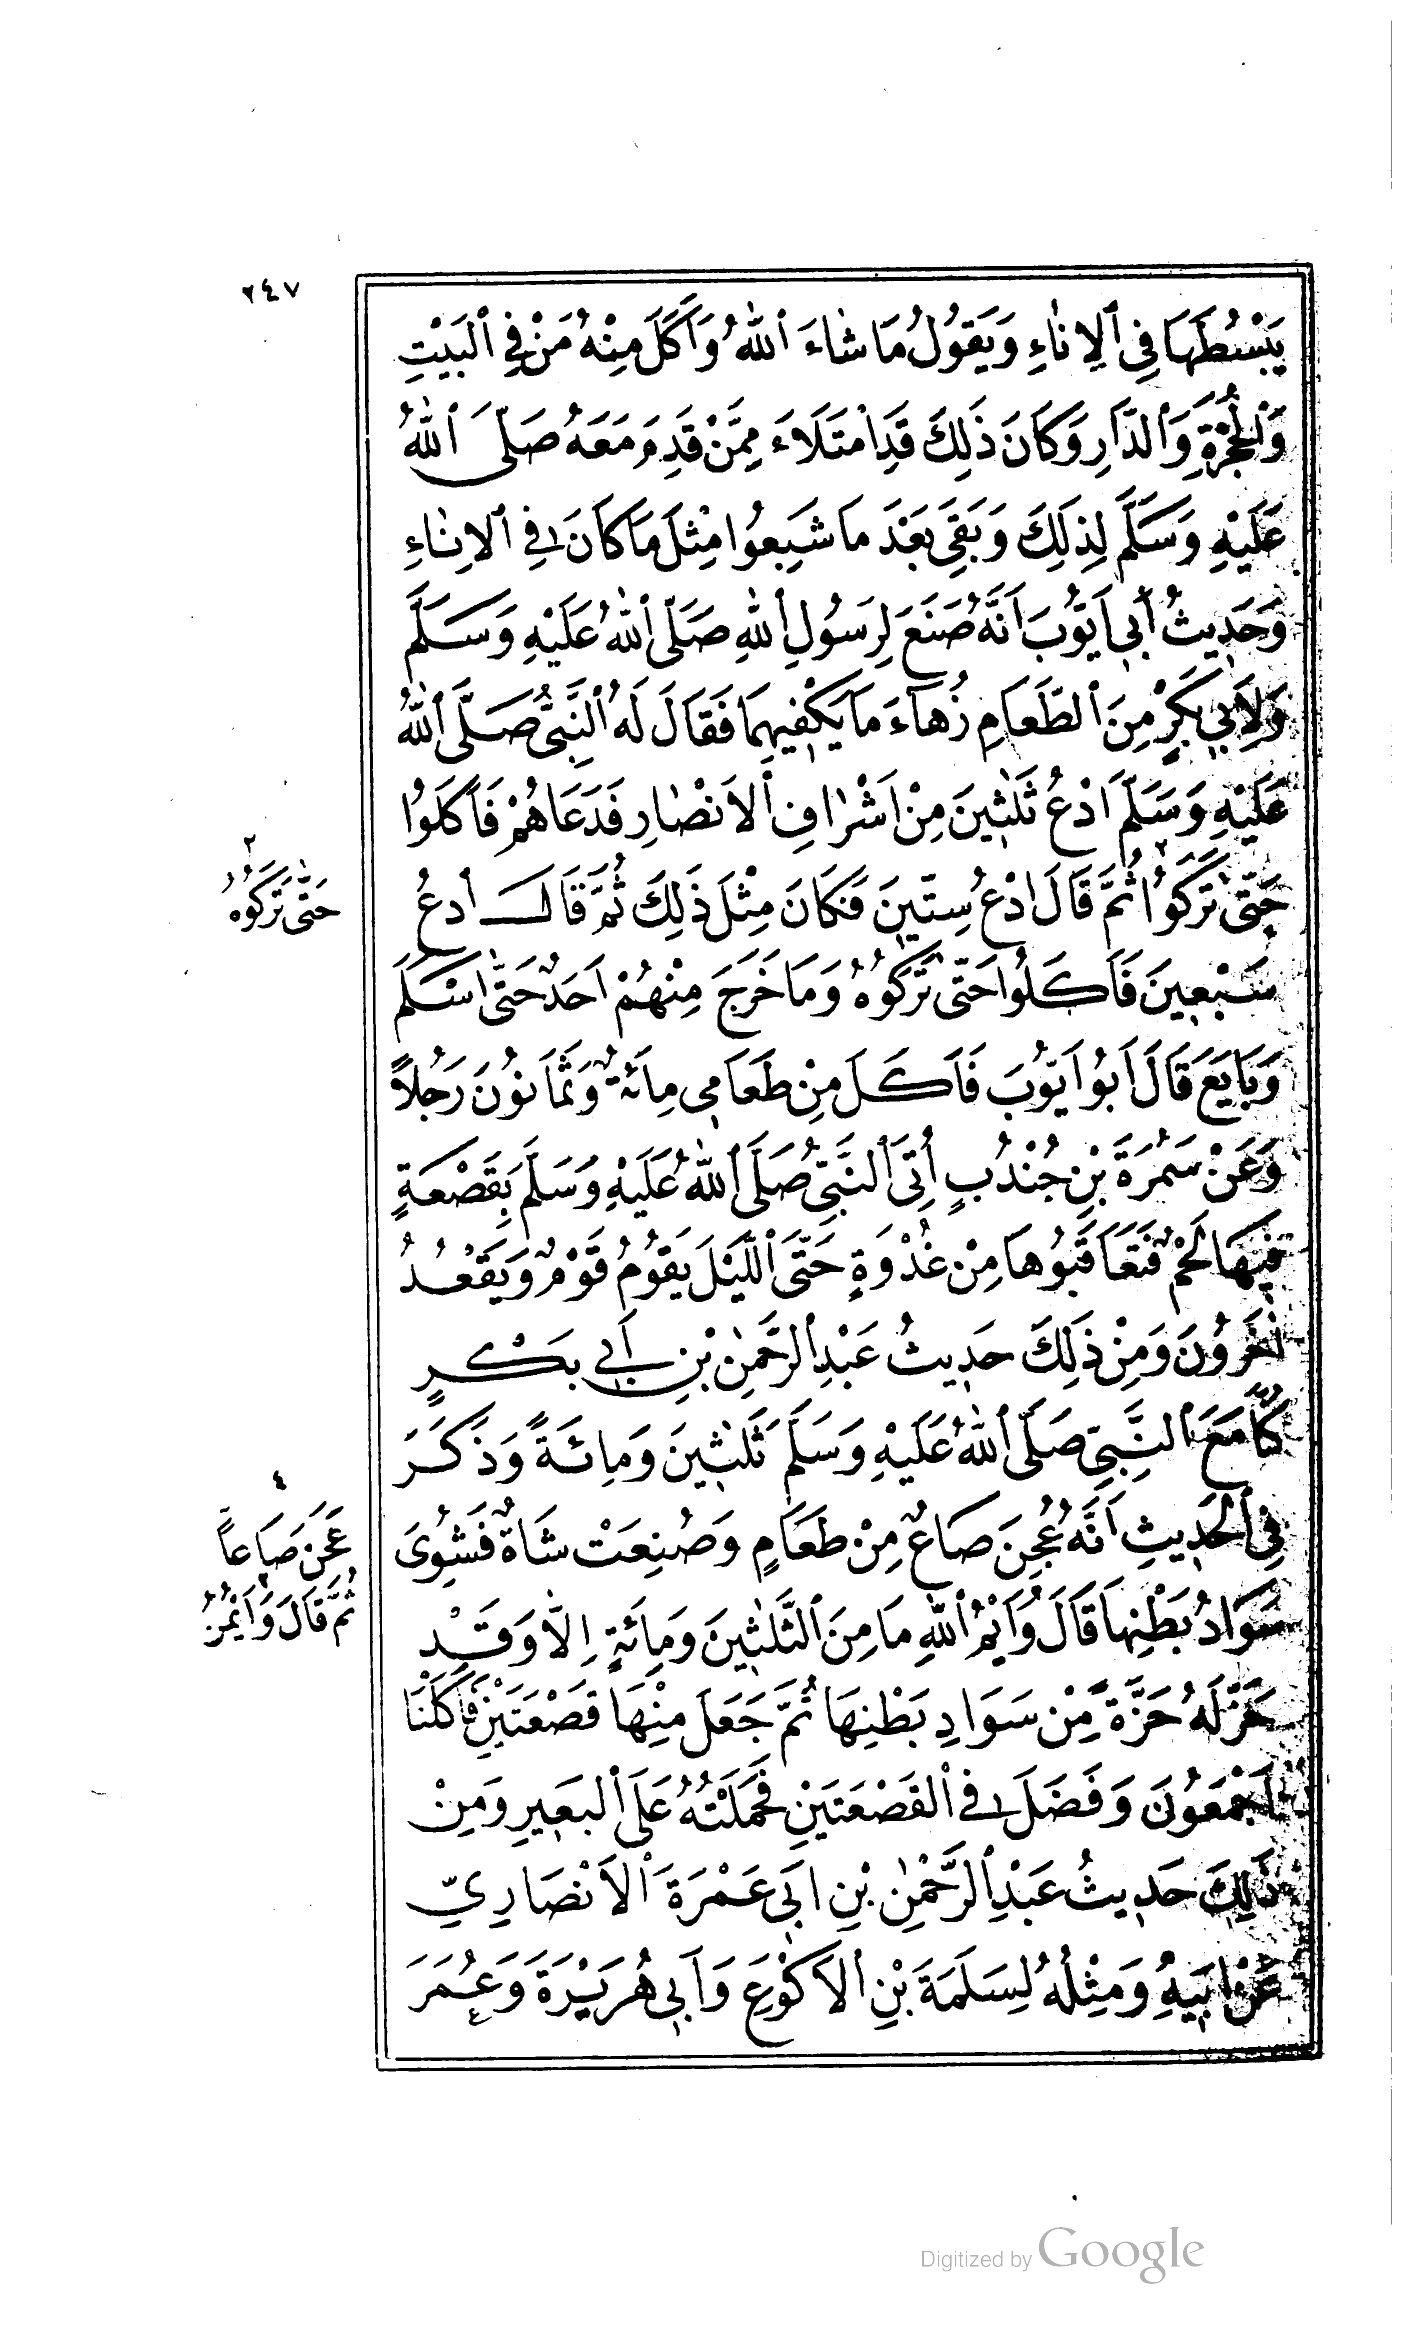 ٢٤٧
يَبْسُطُهَا فِى ٱلْاِنَاءِ وَيَقُولُ مَا شَاءَ ٱللهُ وَاَكَلَ مِنْهُ مَنْ فِى ٱلْبَيْتِ
وَٱلْحُجْرَةِ وَٱلدَّارِ وَكَانَ ذَلِكَ قَدِ امْتَلَاءَ مِمَّنْ قَدِمَ مَعَهُ صَلَّى ٱللهُ
عَلَيْهِ وَسَلَّمَ لِذَلِكَ وَبَقِىَ بَعْدَ مَا شَبِعُوا مِثْلَ مَا كَانَ فِى ٱلْاِنَاءِ
وَحَدِيثُ أَبِى اَيُّوبَ اَنَّهُ صَنَعَ لِرَسُولِ ٱللهِ صَلَّى ٱللهُ عَلَيْهِ وَسَلَّمَ
وَلِاَبِى بَكْرٍ مِنَ ٱلطَّعَامِ زُهَاءَ مَا يَكْفِيهِمَا فَقَالَ لَهُ ٱلنَّبِىُّ صَلَّى ٱللهُ
عَلَيْهِ وَسَلَّمَ ادْعُ ثَلٰثِينَ مِنْ اَشْرَافِ ٱلْاَنْصَارِ فَدَعَاهُمْ فَاَكَلُوا
حَتَّى تَرَكُوا ٢ ثُمَّ قَالَ ادْعُ سِتِّينَ فَكَانَ مِثْلَ ذَلِكَ ثُمَّ قَالَ ادْعُ
سَبْعِينَ فَاَكَلُوا حَتَّى تَرَكُوهُ وَمَا خَرَجَ مِنْهُمْ اَحَدٌ حَتَّى اَسْلَمَ
وَبَايَعَ قَالَ اَبُو اَيُّوبَ فَاَكَلَ مِنْ طَعَامِى مِائَةٌ وَثَمَانُونَ رَجُلاً
وَعَنْ سَمُرَةَ بْنِ جُنْدُبٍ أُتِىَ ٱلنَّبِىُّ صَلَّى ٱللهُ عَلَيْهِ وَسَلَّمَ بِقَصْعَةٍ
فِيهَا لَحْمٌ فَتَعَاقَبُوهَا مِنْ غُدْوَةٍ حَتَّى ٱللَّيْلَ يَقُومُ قَوْمٌ وَيَقْعُدُ
اٰخَرُونَ وَمِنْ ذَلِكَ حَدِيثُ عَبْدِ ٱلرَّحْمٰنِ بْنِ اَبِى بَكْرٍ
كُنَّا مَعَ ٱلنَّبِىِّ صَلَّى ٱللهُ عَلَيْهِ وَسَلَّمَ ثَلٰثِينَ وَمِائَةً وَذَكَرَ
فِى ٱلْحَدِيثِ اَنَّهُ عُجِنَ صَاعٌ مِنْ طَعَامٍ وَصُنِعَتْ شَاةٌ فَشُوِىَ
سَوَادُ بَطْنِهَا قَالَ وَاَيْمُ ٱللهِ مَا مِنَ ٱلثَّلٰثِينَ وَمِائَةٍ اِلَّا وَقَدْ
حَزَّ لَهُ حَزَّةً مِنْ سَوَادِ بَطْنِهَا ثُمَّ جَعَلَ مِنْهَا قَصْعَتَيْنِ فَاَكَلْنَا
اَجْمَعُونَ وَفَضَلَ فِى ٱلْقَصْعَتَيْنِ فَحَمَلْتُهُ عَلَى ٱلْبَعِيرِ وَمِنْ
ذَلِكَ حَدِيثُ عَبْدِ ٱلرَّحْمٰنِ بْنِ اَبِى عَمْرَةَ ٱلْاَنْصَارِىِّ
عَنْ اَبِيهِ وَمِثْلُهُ لِسَلَمَةَ بْنِ ٱلْاَكْوَعِ وَاَبِى هُرَيْرَةَ وَعُمَرَ
٢
حَتَّى تَرَكُوهُ
٤
عَجَنَ صَاعاً
ثُمَّ قَالَ وَاَيْمُنُ
Digitized by Google